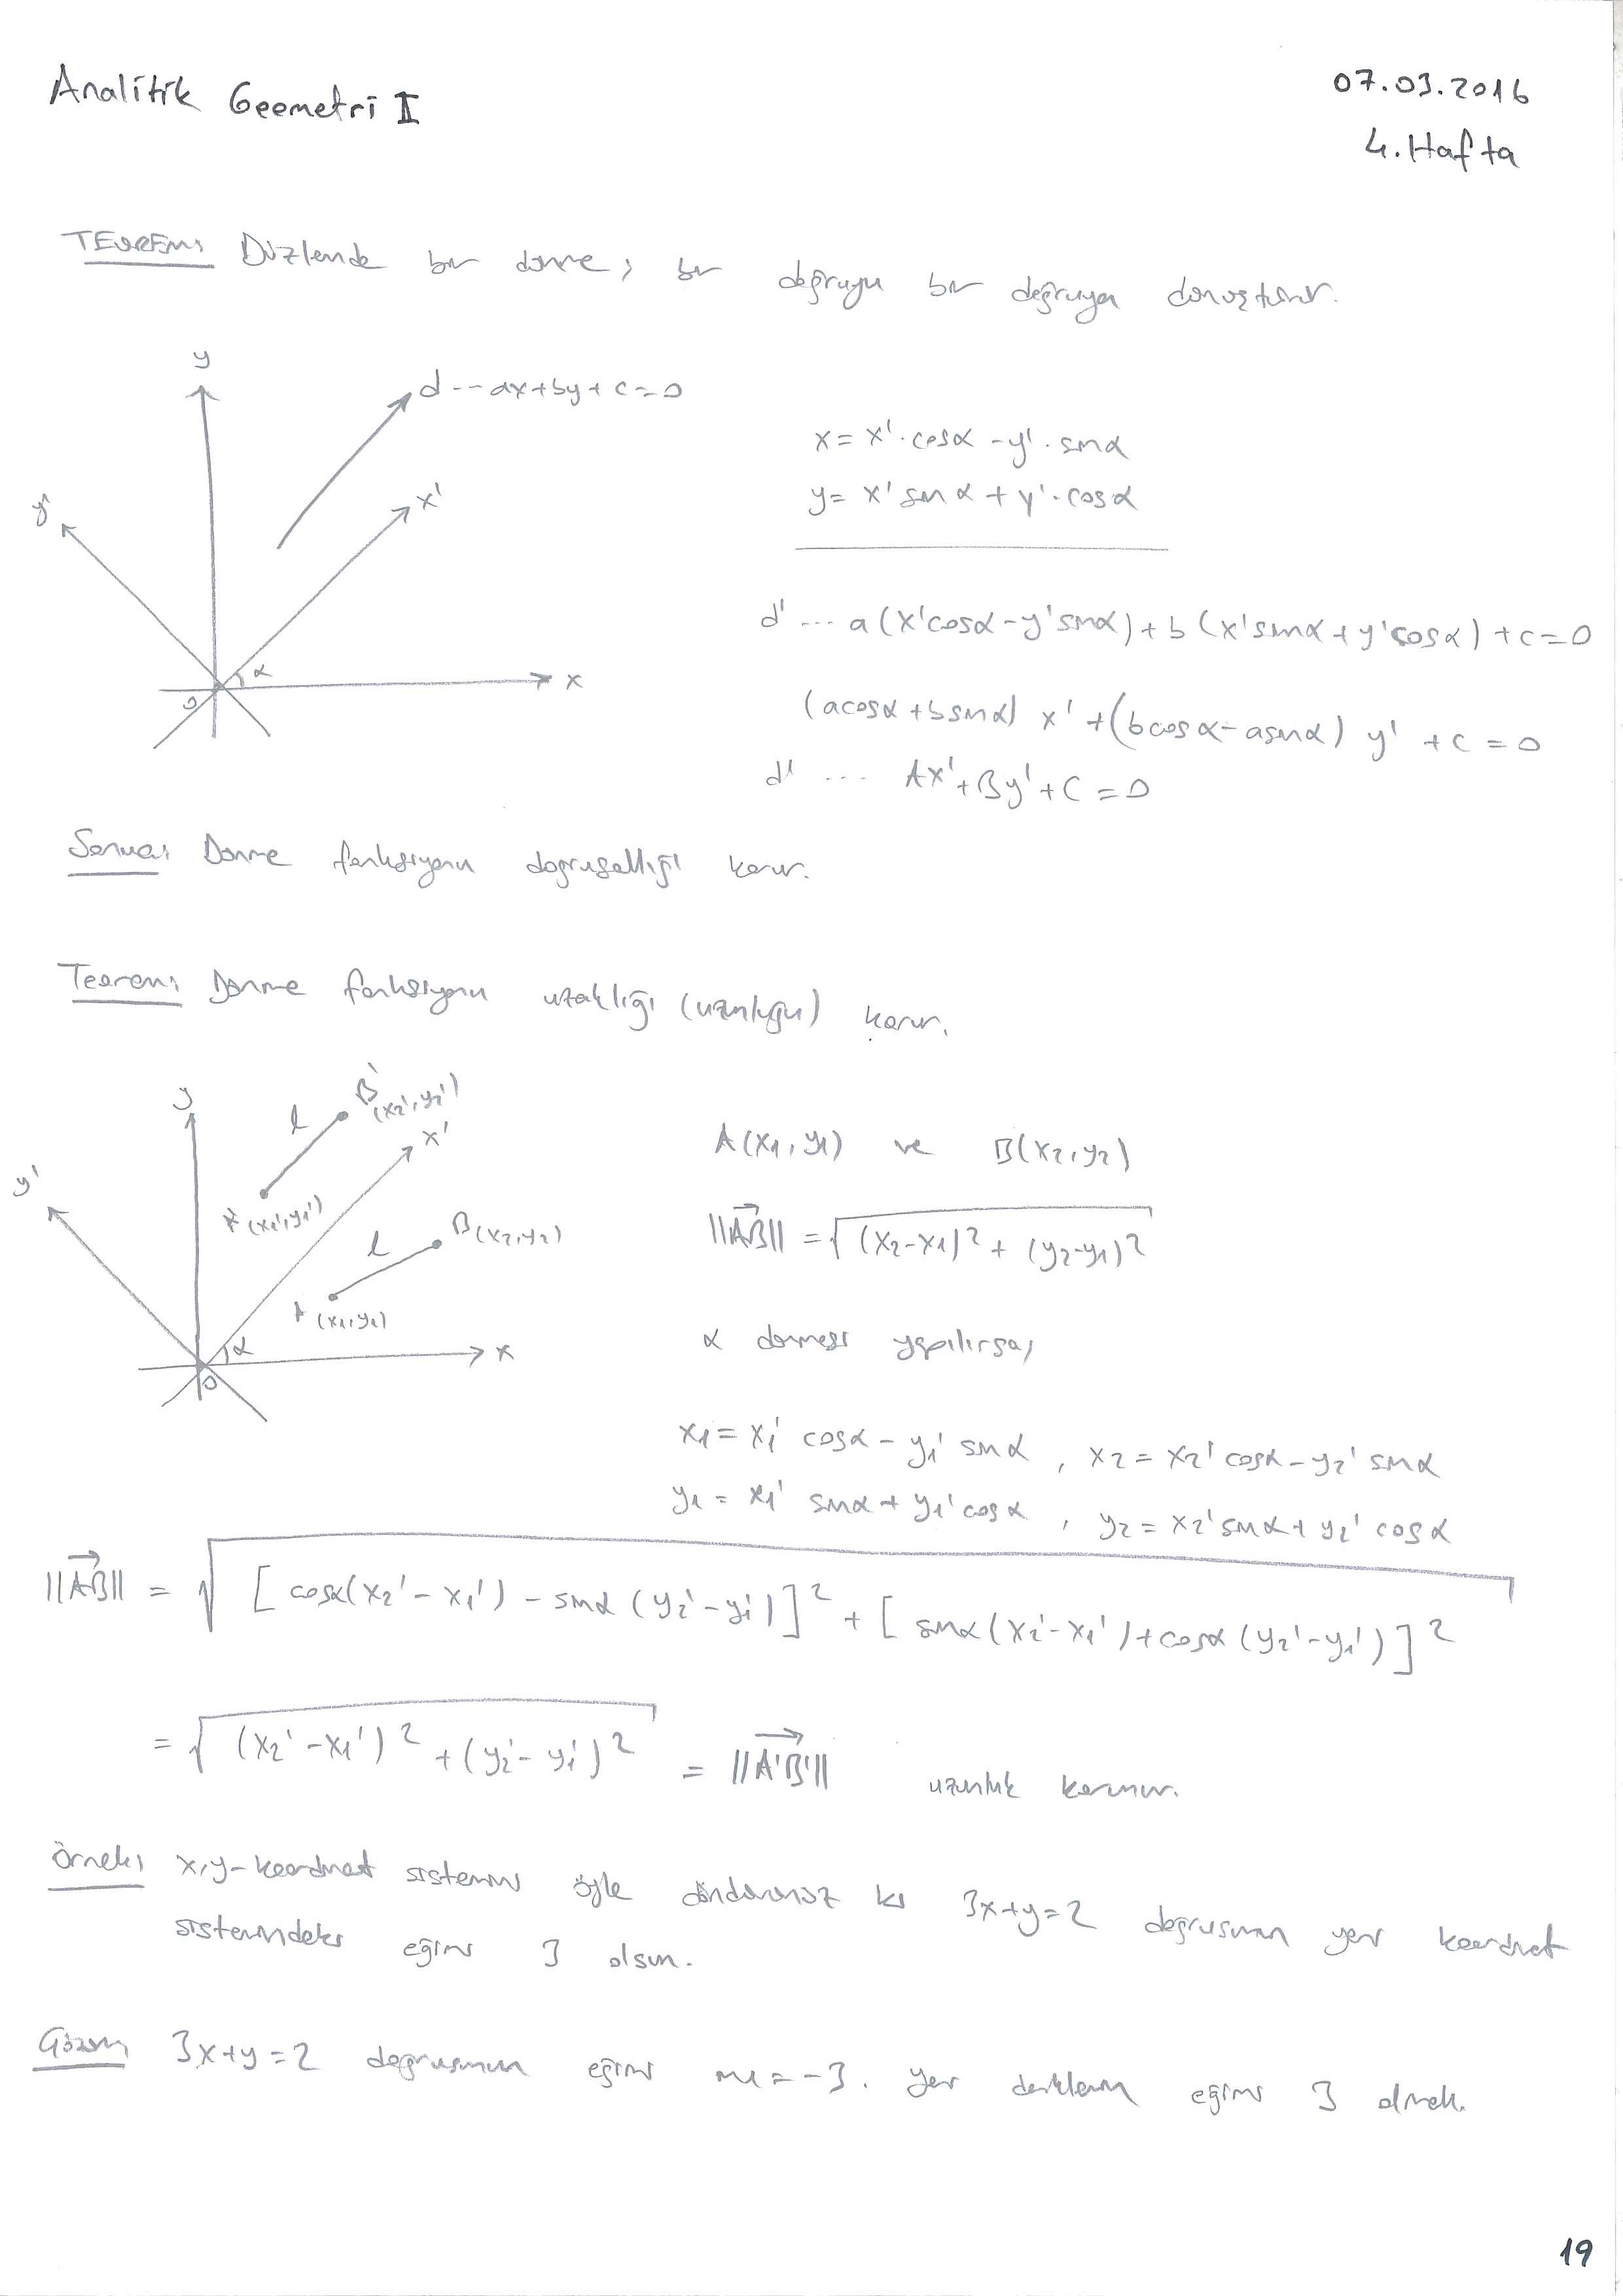 Analitik Geometri II
07.03.2016
4. Hafta
TEOREM: Düzlemde bir dönme, bir doğruyu bir doğruya dönüştürür.
y
d --- ax+by+c=0
x'
y'
α
O
x
x = x'.cosα - y'.sinα
y = x' sinα + y'.cosα
d' ... a(x'cosα-y'sinα)+b(x'sinα+y'cosα)+c=0
(acosα+bsinα) x' + (bcosα-asinα) y' + c = 0
d' ... Ax'+By'+C=0
Sonuç: Dönme fonksiyonu doğrusallığı korur.
Teorem: Dönme fonksiyonu uzaklığı (uzunluğu) korur.
y
l
B'(x2', y2')
x'
y'
A'(x1', y1')
l
B(x2, y2)
A(x1, y1)
α
x
O
A(x1, y1) ve B(x2, y2)
||AB|| = √((x2-x1)² + (y2-y1)²)
α dönmesi yapılırsa,
x1 = x1' cosα - y1' sinα , x2 = x2' cosα - y2' sinα
y1 = x1' sinα + y1' cosα , y2 = x2' sinα + y2' cosα
||AB|| = √([cosα(x2'-x1') - sinα(y2'-y1')]² + [sinα(x2'-x1')+cosα(y2'-y1')]²)
= √((x2'-x1')² + (y2'-y1')²) = ||A'B'|| uzunluk korunur.
Örnek: x,y-koordinat sistemini öyle döndürünüz ki 3x+y=2 doğrusunun yeni koordinat
sistemindeki eğimi 3 olsun.
Çözüm 3x+y=2 doğrusunun eğimi m1 = -3. Yeni denklemin eğimi 3 olmalı.
19